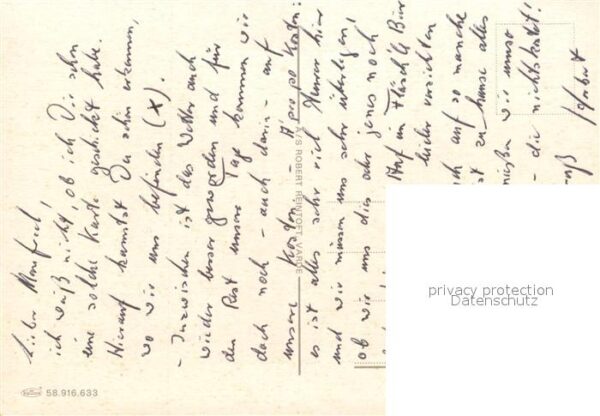 Lieber Manfred!
ich weiß nicht, ob ich Dir schon
eine solche Karte geschickt habe.
Hierauf kannst Du schon erkennen,
wo wir uns befinden (X).
- Inzwischen ist das Wetter auch
wieder besser geworden und für
den Rest unserer Tage kommen wir
doch noch - auch darin - auf
unsere Kosten. - Apropo Kosten:
es ist alles sehr viel teurer hier
und wir müssen uns sehr überlegen!
ob wir uns dies oder jenes noch
Auf ein Fläschle Bier
leider verzichten
auch auf so manche
ist zu hause alles
genießen wir umso
- die nichts kostet!
Gruß
Norbert
A/S ROBERT REINTOFT, VARDE
58.916.633
privacy protection
Datenschutz